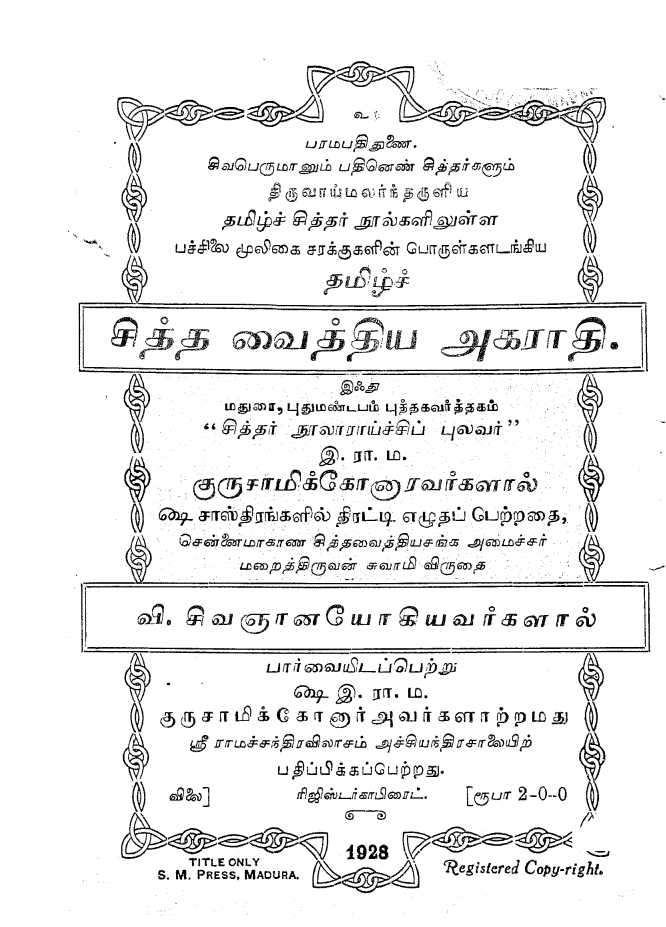 உ
பரமபதி துணை.
சிவபெருமானும் பதினெண் சித்தர்களும்
திருவாய்மலர்ந்தருளிய
தமிழ்ச் சித்தர் நூல்களிலுள்ள
பச்சிலை மூலிகை சரக்குகளின் பொருள்களடங்கிய
தமிழ்ச்
சித்த வைத்திய அகராதி.
இஃது
மதுரை, புதுமண்டபம் புத்தகவர்த்தகம்
“சித்தர் நூலாராய்ச்சிப் புலவர்”
இ. ரா. ம.
குருசாமிக்கோனாரவர்களால்
௸ சாஸ்திரங்களில் திரட்டி எழுதப் பெற்றதை,
சென்னைமாகாண சித்தவைத்தியசங்க அமைச்சர்
மறைத்திருவன் சுவாமி விருதை
வி. சிவஞானயோகியவர்களால்
பார்வையிடப்பெற்று
௸ இ. ரா. ம.
குருசாமிக்கோனார் அவர்களாற்றமது
ஸ்ரீ ராமச்சந்திரவிலாசம் அச்சியந்திரசாலையிற்
பதிப்பிக்கப்பெற்றது.
விலை] ரிஜிஸ்டர்காபிரைட். [ரூபா 2-0--0
1928
TITLE ONLY
S. M. PRESS, MADURA.
Registered Copy-right.